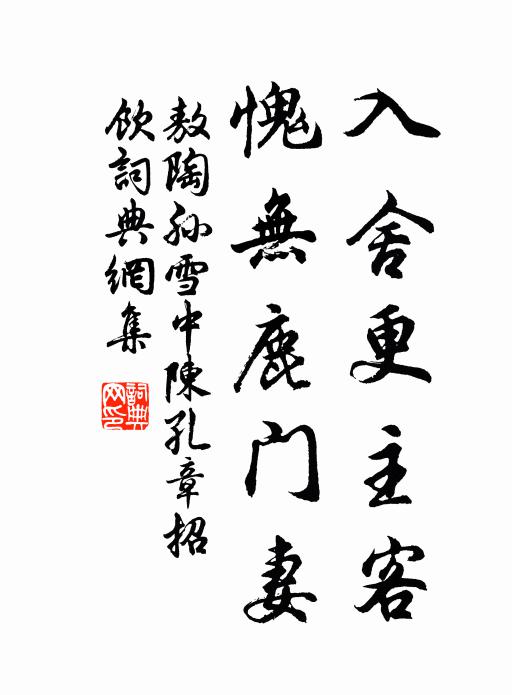 入舍更主客
愧無鹿門妻
敖陶孙雪中陳孔章招
飲詞典網集
詞典
网印